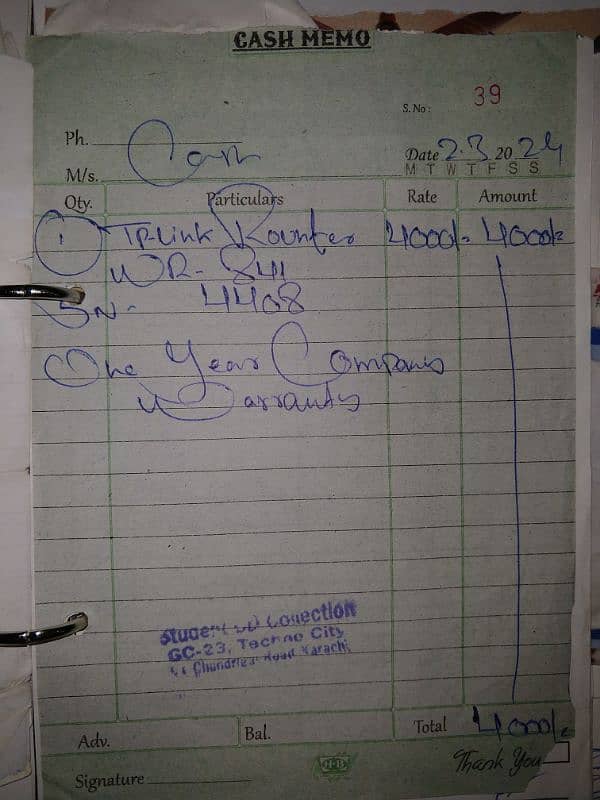 CASH MEMO
S. No: 39
Ph.
M/s. Cash
Date 2.3 20 24
M T W T F S S
Qty. Particulars Rate Amount
1 TP-Link Rounter 4000/- 4000/-
WR-841
SN- 4408
One Year Company
Warranty
Student CD Collection
GC-23, Techno City
Chundrigar Road Karachi
Adv. Bal. Total 4000/-
Thank You
Signature